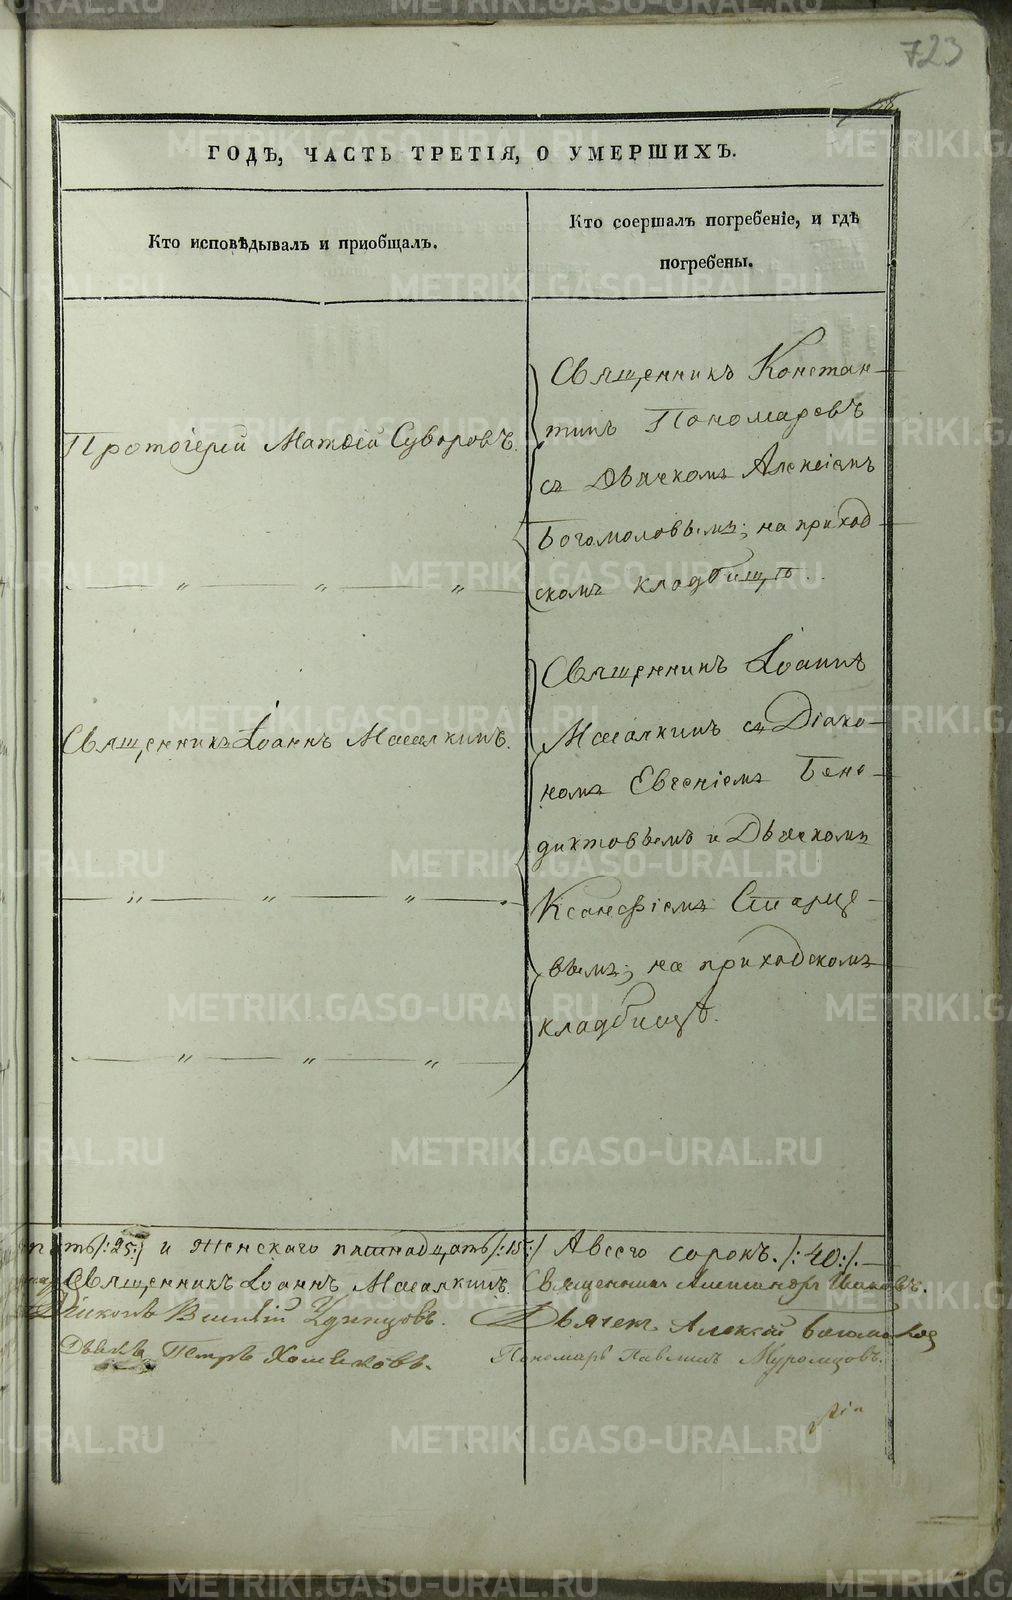 723
ГОДѢ, ЧАСТЬ ТРЕТІЯ, О УМЕРШИХЪ.
Кто исповѣдывалъ и приобщалъ.
Кто соершалъ погребеніе, и гдѣ
погребены.
Протоіерей Матѳей Суворовъ.
Священникъ Констан-
тинъ Пономаревъ
съ Дьячкомъ Алексіемъ
Богомоловымъ; на приход-
скомъ кладбищѣ.
Священникъ Іоаннъ Масалкинъ.
Священникъ Іоаннъ
Масалкинъ съ Діако-
номъ Евгеніемъ Бене-
диктовымъ и Дьячкомъ
Ксанфіемъ Старце-
вымъ; на приходскомъ
кладбищѣ.
пять/:25:/ и Женскаго пятнадцать/:15:/ А всего сорокъ./:40:/.
Священникъ Іоаннъ Масалкинъ. Священникъ Александръ Ивановъ.
Діаконъ Василій Удинцовъ. Дьячекъ Алексій Богомолов
Дьячекъ Петръ Хомяковъ. Пономарь Павлинъ Муромцовъ.
METRIKI.GASO-URAL.RU